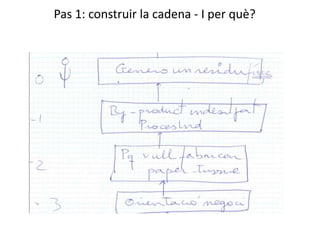 Pas 1: construir la cadena - I per què?
0 Ψ Genero un residu
-1 By-product indesitjat
Procés Ind
-2 Pq vull fabricar
paper-tissue
-3 Orientació negoci